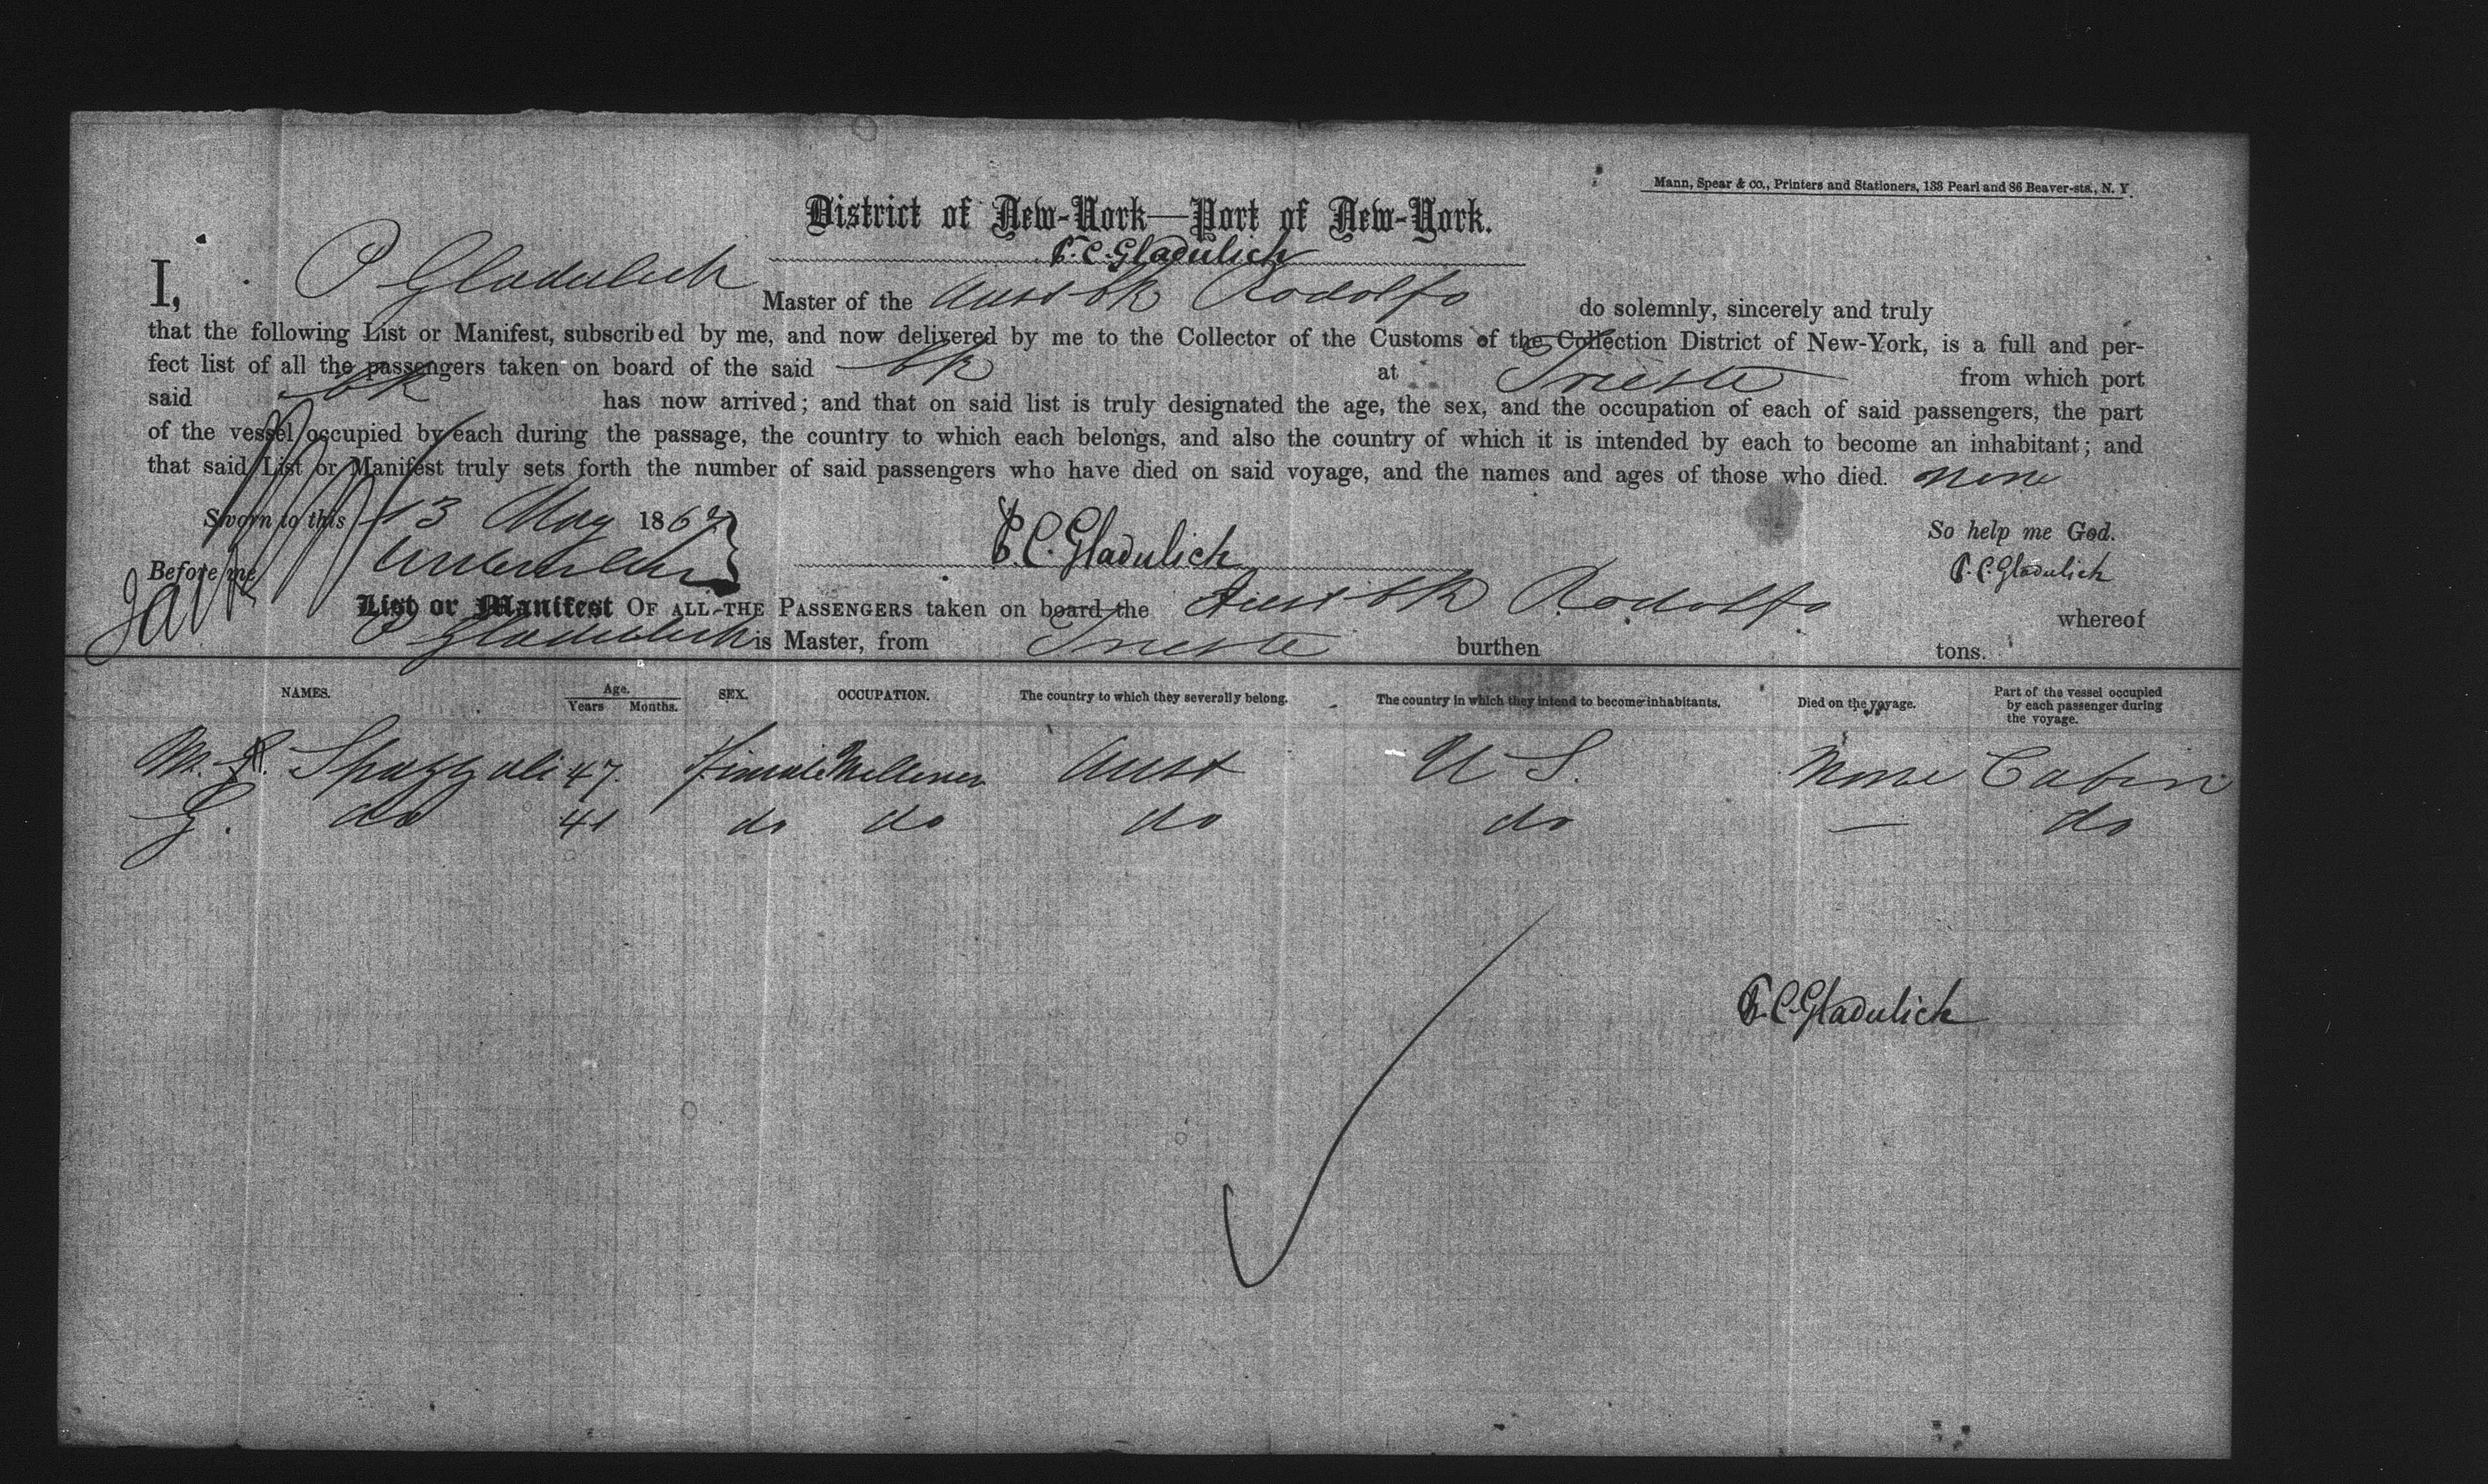 Mann, Spear & co., Printers and Stationers, 133 Pearl and 86 Beaver-sts., N. Y.
District of New-York—Port of New-York.
P. C. Gladulich
I, P Gladulich Master of the Aust bk Rodolfo do solemnly, sincerely and truly
that the following List or Manifest, subscribed by me, and now delivered by me to the Collector of the Customs of the Collection District of New-York, is a full and per-
fect list of all the passengers taken on board of the said bk at Trieste from which port
said bk has now arrived; and that on said list is truly designated the age, the sex, and the occupation of each of said passengers, the part
of the vessel occupied by each during the passage, the country to which each belongs, and also the country of which it is intended by each to become an inhabitant; and
that said List or Manifest truly sets forth the number of said passengers who have died on said voyage, and the names and ages of those who died. none
Sworn to this 13 May 186 P. C. Gladulich So help me God.
Before me P. C. Gladulich
List or Manifest OF ALL THE PASSENGERS taken on board the Aust bk Rodolfo whereof
P Gladulich is Master, from Trieste burthen tons.
NAMES. Age. Years Months. SEX. OCCUPATION. The country to which they severally belong. The country in which they intend to become inhabitants. Died on the voyage. Part of the vessel occupied by each passenger during the voyage.
M. Spazzali 47 Female Milliner Aust U S. None Cabin
G. do 41 do do do do — do
P. C. Gladulich